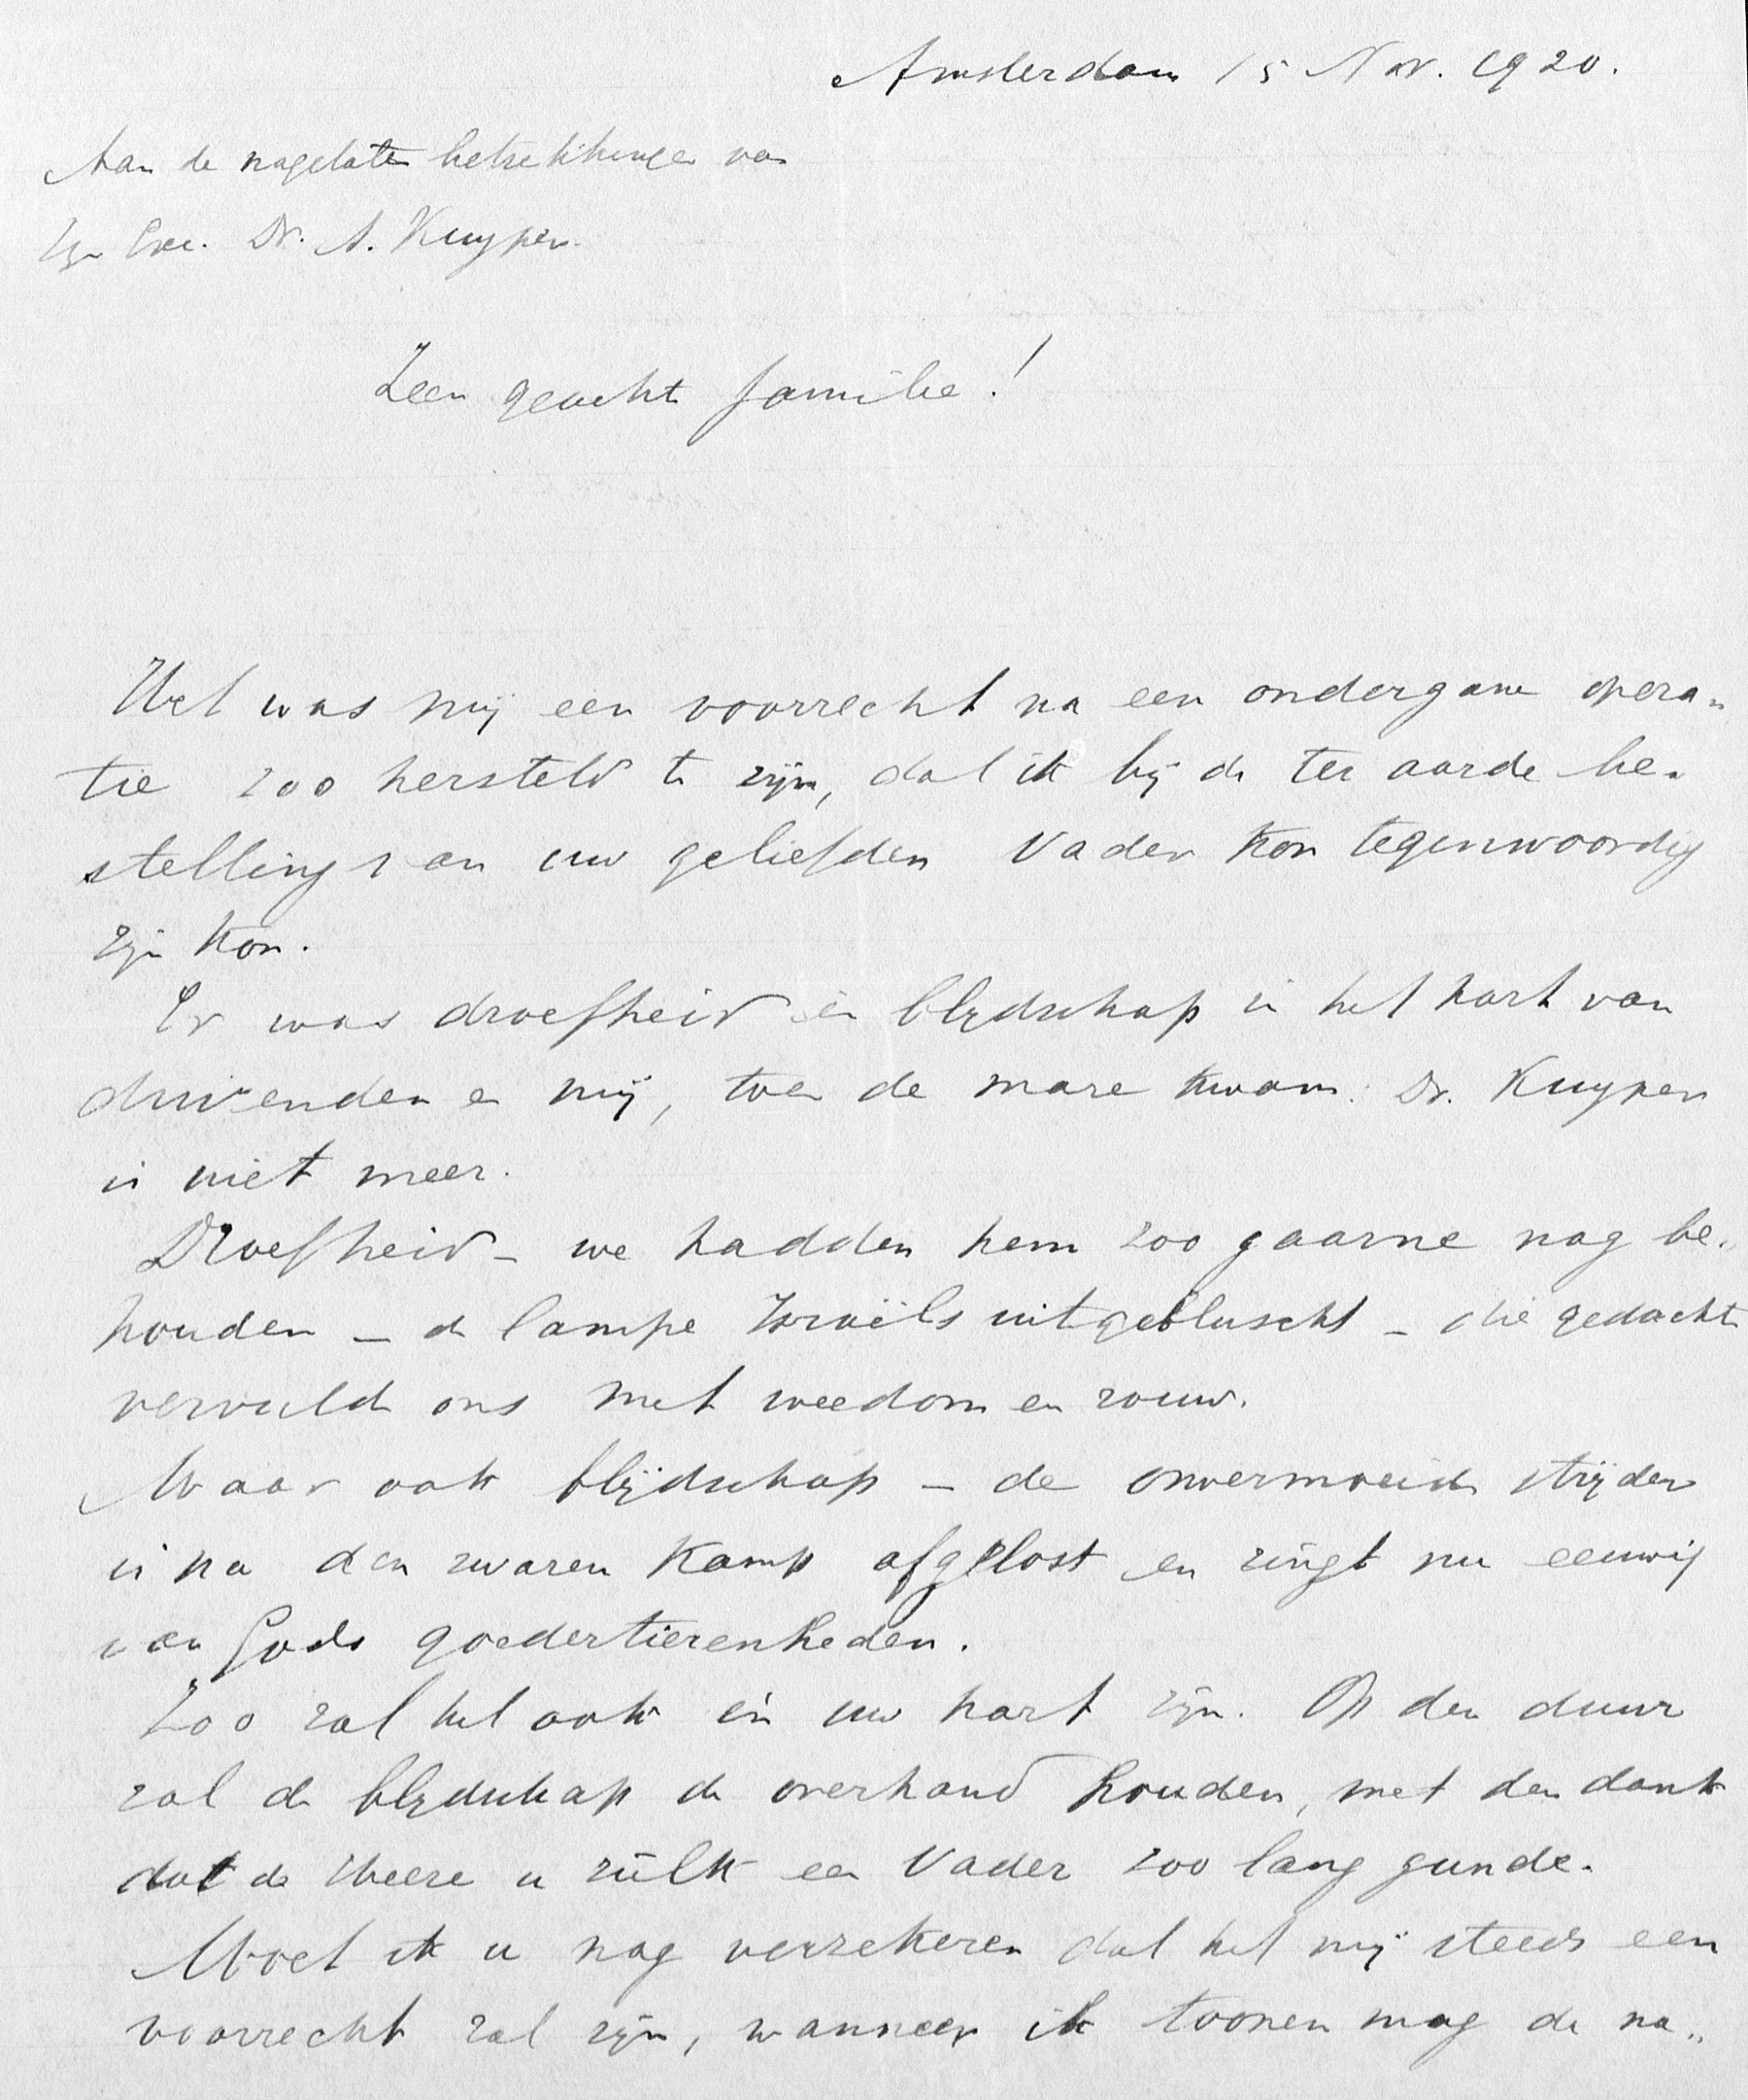 Amsterdam 15 Nov. 1920.
Aan de nagelaten betrekkingen van
Zijn Exc. Dr. A. Kuyper.
Zeer geachte familie!
Het was mij een voorrecht na een ondergane opera„
tie zoo hersteld te zijn, dat ik bij de ter aarde be„
stelling van uw geliefden Vader kon tegenwoordig
zijn kon.
Er was droefheid en blijdschap in het hart van
duizenden en mij, toen de mare kwam: Dr. Kuyper
is niet meer.
Droefheid – we hadden hem zoo gaarne nog be„
houden – de lampe Israëls uitgebluscht – die gedachte
vervulde ons met weedom en rouw.
Maar ook blijdschap – de onvermoeide strijder
is na den zwaren kamp afgelost en zingt nu eeuwig
van Gods goedertierenheden.
Zoo zal het ook in uw hart zijn. Op den duur
zal de blijdschap de overhand houden, met den dank
dat de Heere u zulk een Vader zoo lang gunde.
Moet ik u nog verzekeren dat het mij steeds een
voorrecht zal zijn, wanneer ik toonen mag de na„